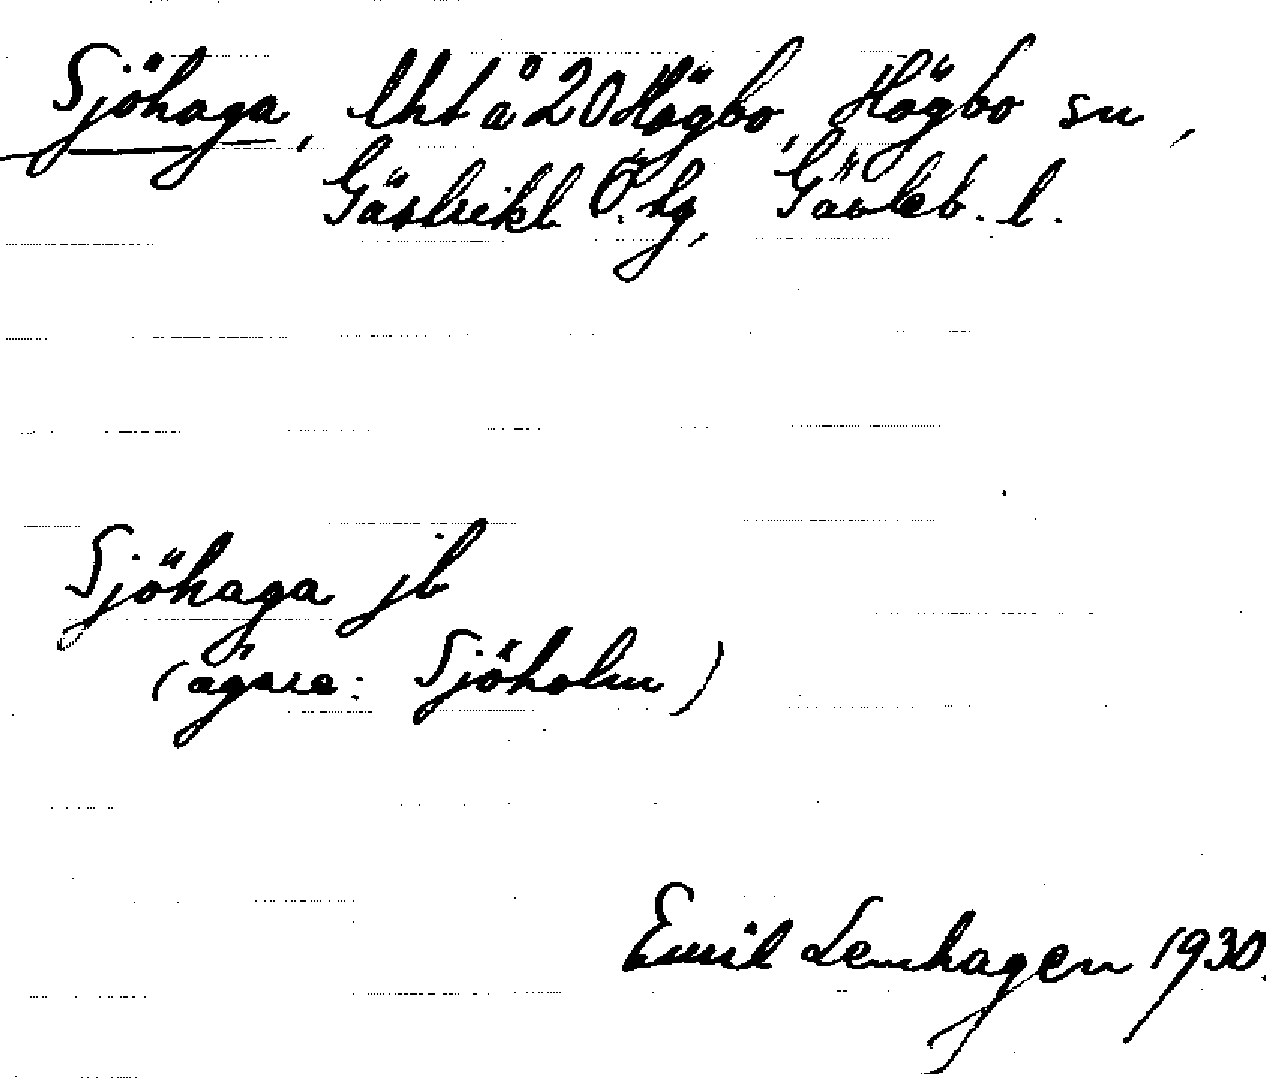 Sjöhaga, lht å 20 Högbo, Högbo sn,
Gästrikl Ö. hg, Gävleb. l.
Sjöhaga jb
(ägare: Sjöholm)
Emil Lenhagen 1930.